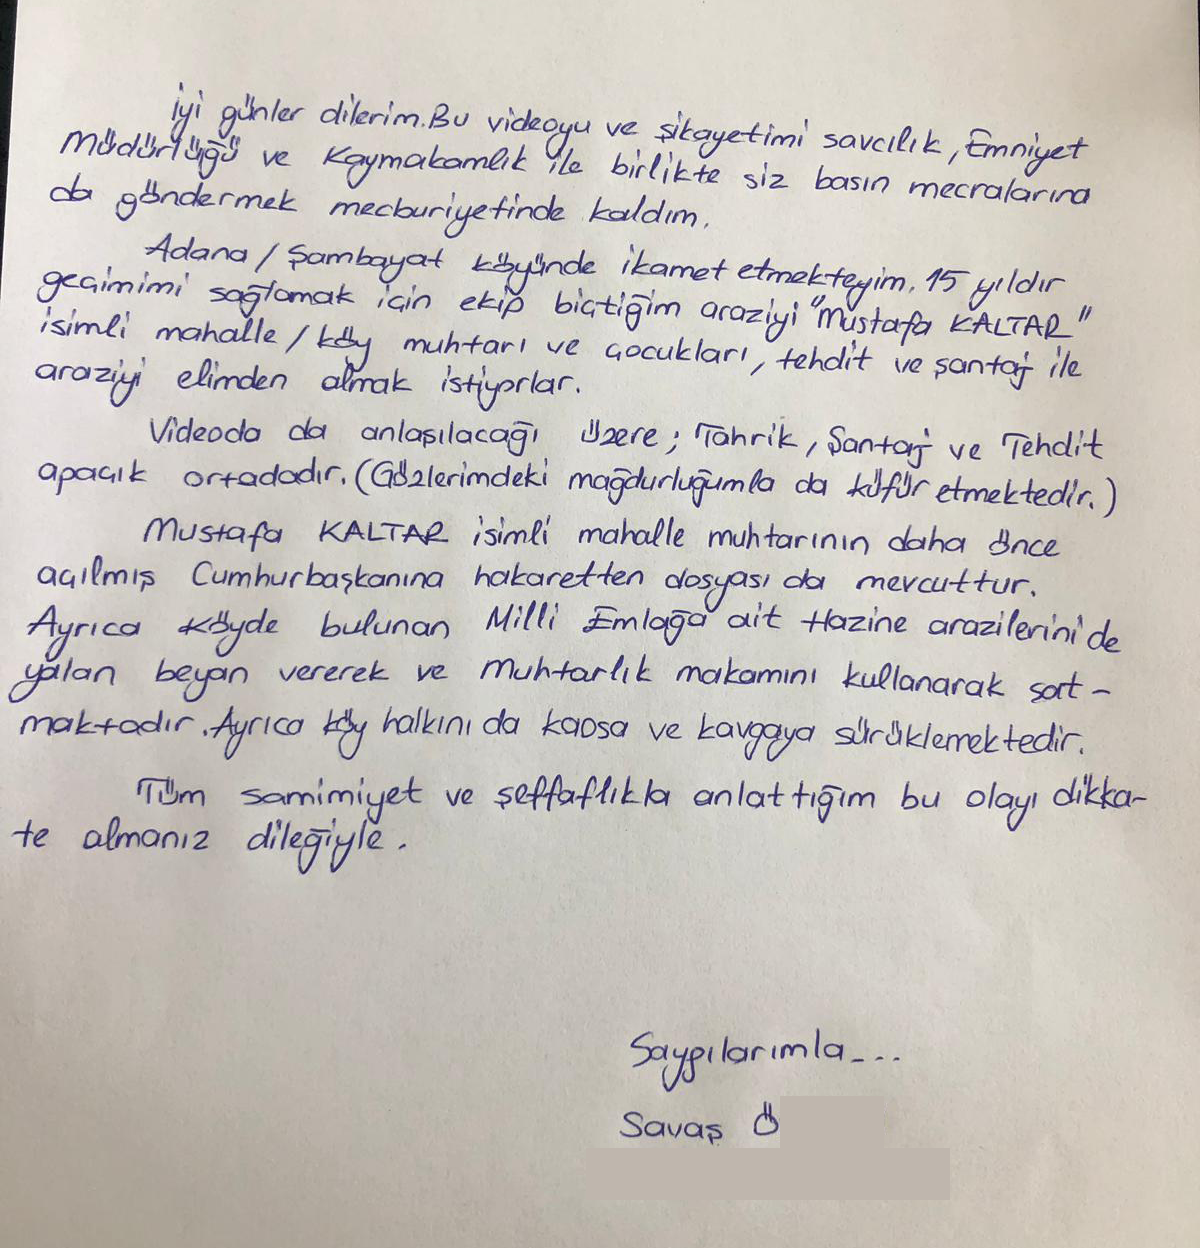 İyi günler dilerim. Bu videoyu ve şikayetimi savcılık, Emniyet
Müdürlüğü ve Kaymakamlık ile birlikte siz basın mecralarına
da göndermek mecburiyetinde kaldım.
Adana / Şambayat köyünde ikamet etmekteyim. 15 yıldır
geçimimi sağlamak için ekip biçtiğim araziyi "Mustafa KALTAR"
isimli mahalle / köy muhtarı ve çocukları, tehdit ve şantaj ile
araziyi elimden almak istiyorlar.
Videoda da anlaşılacağı üzere; Tahrik, Şantaj ve Tehdit
apaçık ortadadır. (Gözlerimdeki mağdurluğumla da küfür etmektedir.)
Mustafa KALTAR isimli mahalle muhtarının daha önce
açılmış Cumhurbaşkanına hakaretten dosyası da mevcuttur.
Ayrıca köyde bulunan Milli Emlağa ait Hazine arazilerini de
yalan beyan vererek ve Muhtarlık makamını kullanarak sat-
maktadır. Ayrıca köy halkını da kaosa ve kavgaya sürüklemektedir.
Tüm samimiyet ve şeffaflıkla anlattığım bu olayı dikka-
te almanız dileğiyle.
Saygılarımla...
Savaş Ö